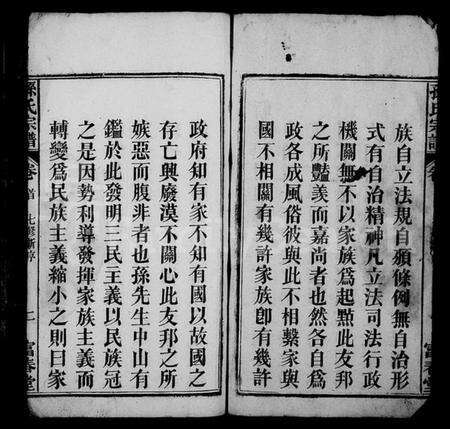 族自立法規自頒條例無自治形
式有自治精神凡立法司法行政
機關無不以家族爲起點此友邦
之所豔羨而嘉尚者也然各自爲
政各成風俗彼與此不相繫家與
國不相關有幾許家族卽有幾許
政府知有家不知有國以故國之
存亡興廢漠不關心此友邦之所
嫉惡而腹非者也孫先生中山有
鑑於此發明三民主義以民族冠
之是因勢利導發揮家族主義而
轉變爲民族主義縮小之則曰家
孫氏宗譜
卷首
二
富春堂